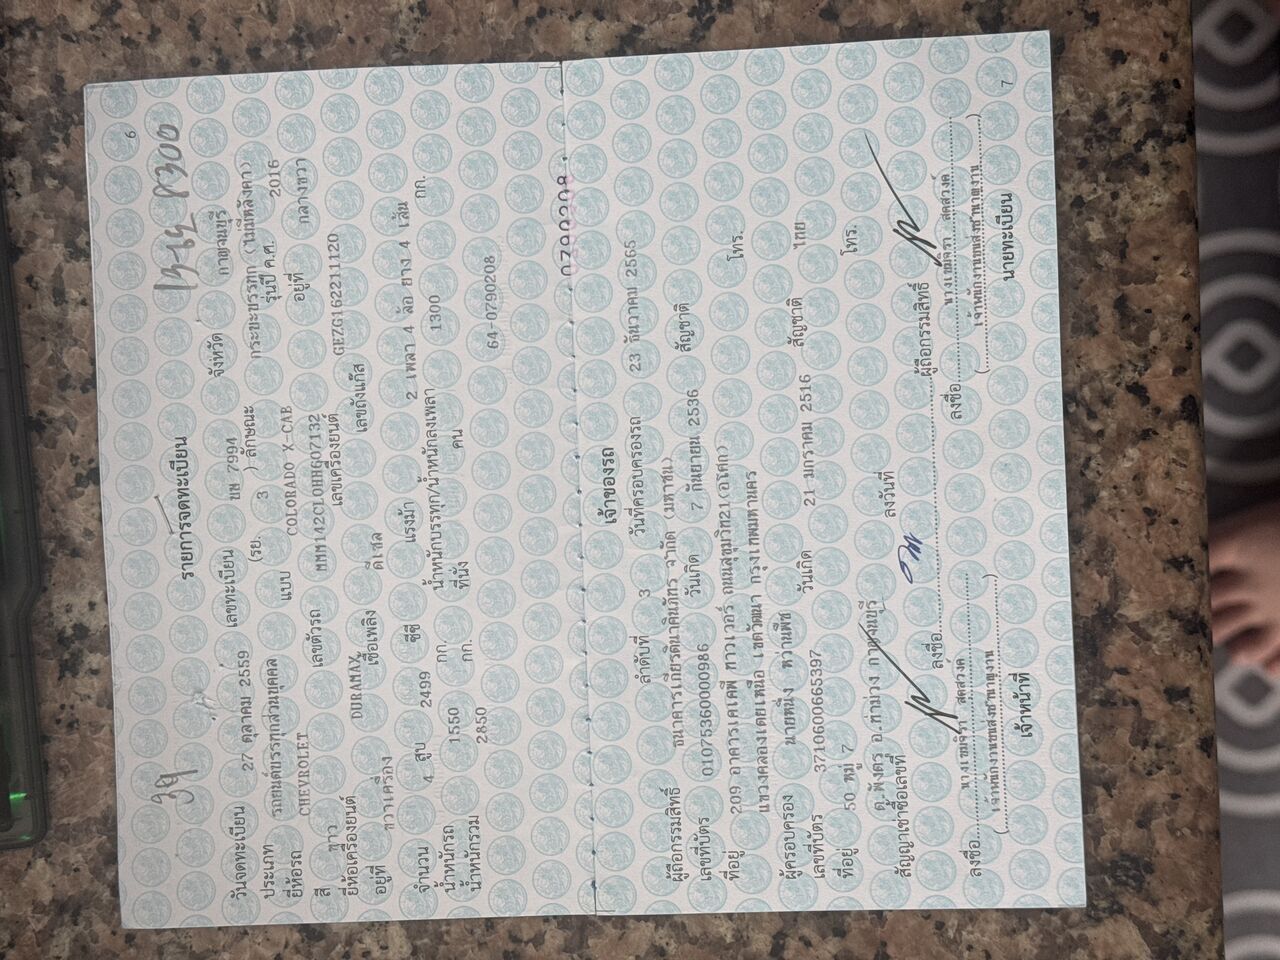 6
รายการจดทะเบียน
วันจดทะเบียน 27 ตุลาคม 2559 เลขทะเบียน 7994 จังหวัด กาญจนบุรี
ประเภท รถยนต์บรรทุกส่วนบุคคล (รย. 3 ) ลักษณะ กระบะบรรทุก (ไม่มีหลังคา)
ยี่ห้อรถ CHEVROLET แบบ COLORADO X-CAB รุ่นปี ค.ศ. 2016
สี ขาว เลขตัวรถ MMM142CL0HH607132 อยู่ที่ กลางขวา
ยี่ห้อเครื่องยนต์ DURAMAX เลขเครื่องยนต์ GEZG162211120
อยู่ที่ ขวาเครื่อง เชื้อเพลิง ดีเซล เลขถังแก๊ส
จำนวน 4 สูบ 2499 ซีซี แรงม้า 2 เพลา 4 ล้อ ยาง 4 เส้น
น้ำหนักรถ 1550 กก. น้ำหนักบรรทุก/น้ำหนักลงเพลา 1300 กก.
น้ำหนักรวม 2850 กก. ที่นั่ง คน
64-0790208
0790208
เจ้าของรถ
ลำดับที่ 3 วันที่ครอบครองรถ 23 ธันวาคม 2565
ผู้ถือกรรมสิทธิ์ ธนาคารเกียรตินาคินภัทร จำกัด (มหาชน)
เลขที่บัตร 0107536000986 วันเกิด 7 กันยายน 2536 สัญชาติ
ที่อยู่ 209 อาคารเคเคพี ทาวเวอร์ ถนนสุขุมวิท21(อโศก)
แขวงคลองเตยเหนือ เขตวัฒนา กรุงเทพมหานคร โทร.
ผู้ครอบครอง นายหนึ่ง หวานพืช
เลขที่บัตร 3710600665397 วันเกิด 21 มกราคม 2516 สัญชาติ ไทย
ที่อยู่ 50 หมู่ 7
ต.พังตรุ อ.ท่าม่วง กาญจนบุรี โทร.
สัญญาเช่าซื้อเลขที่ ลงวันที่
ลงชื่อ ผู้ถือกรรมสิทธิ์
ลงชื่อ ลงชื่อ
(เจ้าพนักงานขนส่งชำนาญงาน) (เจ้าพนักงานขนส่งชำนาญงาน)
เจ้าหน้าที่ นายทะเบียน
7